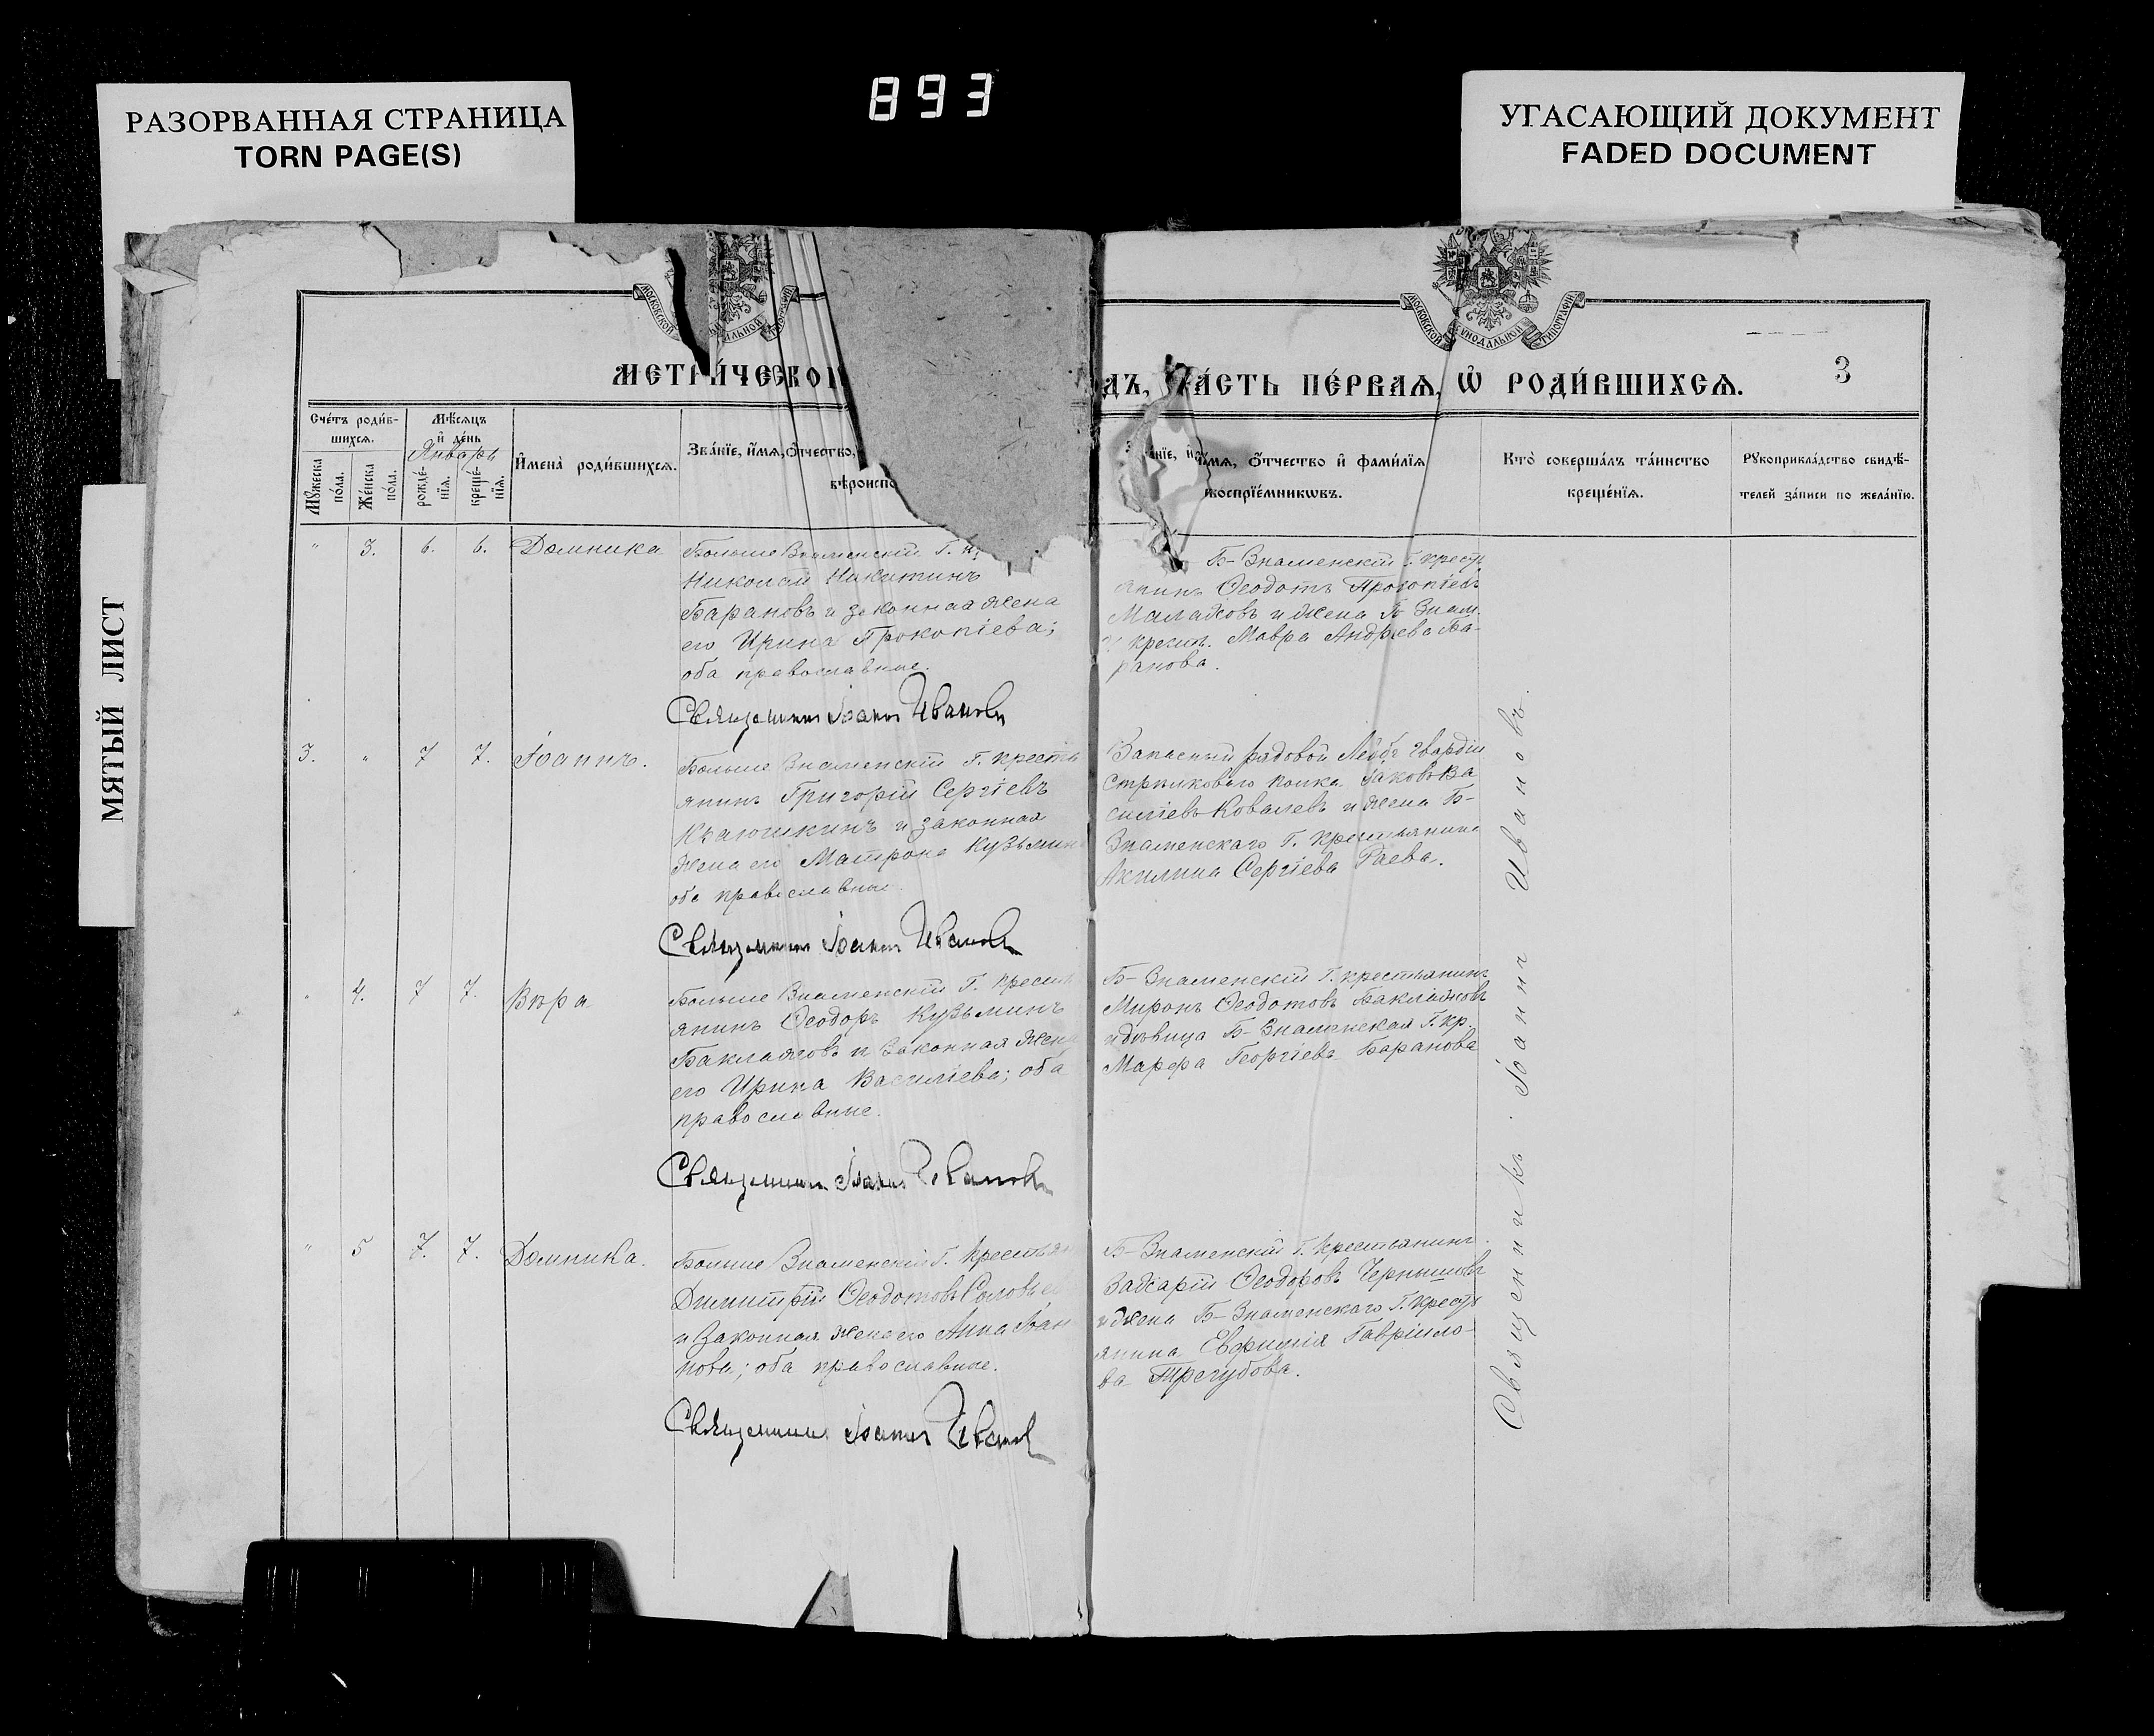 893
РАЗОРВАННАЯ СТРАНИЦА
TORN PAGE(S)
УГАСАЮЩИЙ ДОКУМЕНТ
FADED DOCUMENT
МЯТЫЙ ЛИСТ
МОСКОВСКОЙ
ТѴПОГРАФІИ
МОСКОВСКОЙ СѴНОДАЛЬНОЙ ТѴПОГРАФІИ
МЕТРИ́ЧЕСКОЙ
ДЪ, ЧА́СТЬ ПЕ́РВАѦ, Ѡ҆ РОДИ́ВШИХСѦ.
3
Сче́тъ роди́в-
шихсѧ.
Мꙋ́жеска по́ла.
Же́нска по́ла.
Мѣ́сѧцъ
и҆ де́нь
Январь
рожде́-нїѧ.
креще́-нїѧ.
И҆мена̀ роди́вшихсѧ.
Зва́нїе, и҆́мѧ, ѻ҆́тчество,
вѣроиспо
и҆́мѧ, ѻ҆́тчество и҆ фами́лїѧ
воспрїе́мникѡвъ.
Кто̀ соверша́лъ та́инство
креще́нїѧ.
Рꙋкоприкла́дство свидѣ́-
телей за́писи по жела́нїю.
" 3. 6. 6. Домника
Больше Знаменскій Г. к
Николай Никитинъ
Барановъ и законная жена
его Ирина Прокопіева;
оба православные.
Священникъ Іоаннъ Ивановъ
Б-Знаменскій Г. кресть
янинъ Ѳеодотъ Прокопіевъ
Малаховъ и жена Б Знам.
Г. крест. Мавра Андреева Ба-
ранова.
3. " 7 7. Іоаннъ.
Больше Знаменскій Г. кресть
янинъ Григорій Сергіевъ
и законная
жена его Матрона Кузьмин
оба православные.
Священникъ Іоаннъ Ивановъ
Запасный рядовой Лейбъ Гвардіи
Стрѣлковаго полка Іаковъ Ва
силіевъ Ковалевъ и жена Б-
Знаменскаго Г. крестьянина
Акилина Сергіева Раева.
" 4. 7 7. Вѣра
Больше Знаменскій Г. кресть
янинъ Ѳеодоръ Кузьминъ
Баклажовъ и законная жена
его Ирина Василіева; оба
православные.
Священникъ Іоаннъ Ивановъ
Б-Знаменскій Г. крестьянинъ
Миронъ Ѳеодотовъ Баклажовъ
и дѣвица Б-Знаменская Г. кр.
Марфа Георгіева Баранова
" 5 7. 7. Домника.
Больше Знаменскій Г. крестьян
Димитрій Ѳеодотовъ Соловье
и законная жена его Анна Іоан
нова; оба православные.
Священникъ Іоаннъ Ивановъ
Б-Знаменскій Г. крестьянинъ
Захарій Ѳеодоровъ Чернышовъ
и жена Б-Знаменскаго Г. кресть
янина Евфимія Гавріило-
ва Трегубова.
Священникъ Іоаннъ Ивановъ.